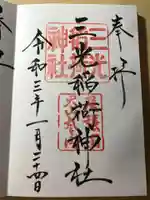 奉拝
三光稲荷神社
令和三年一月二十四日
三光
稲荷
神社